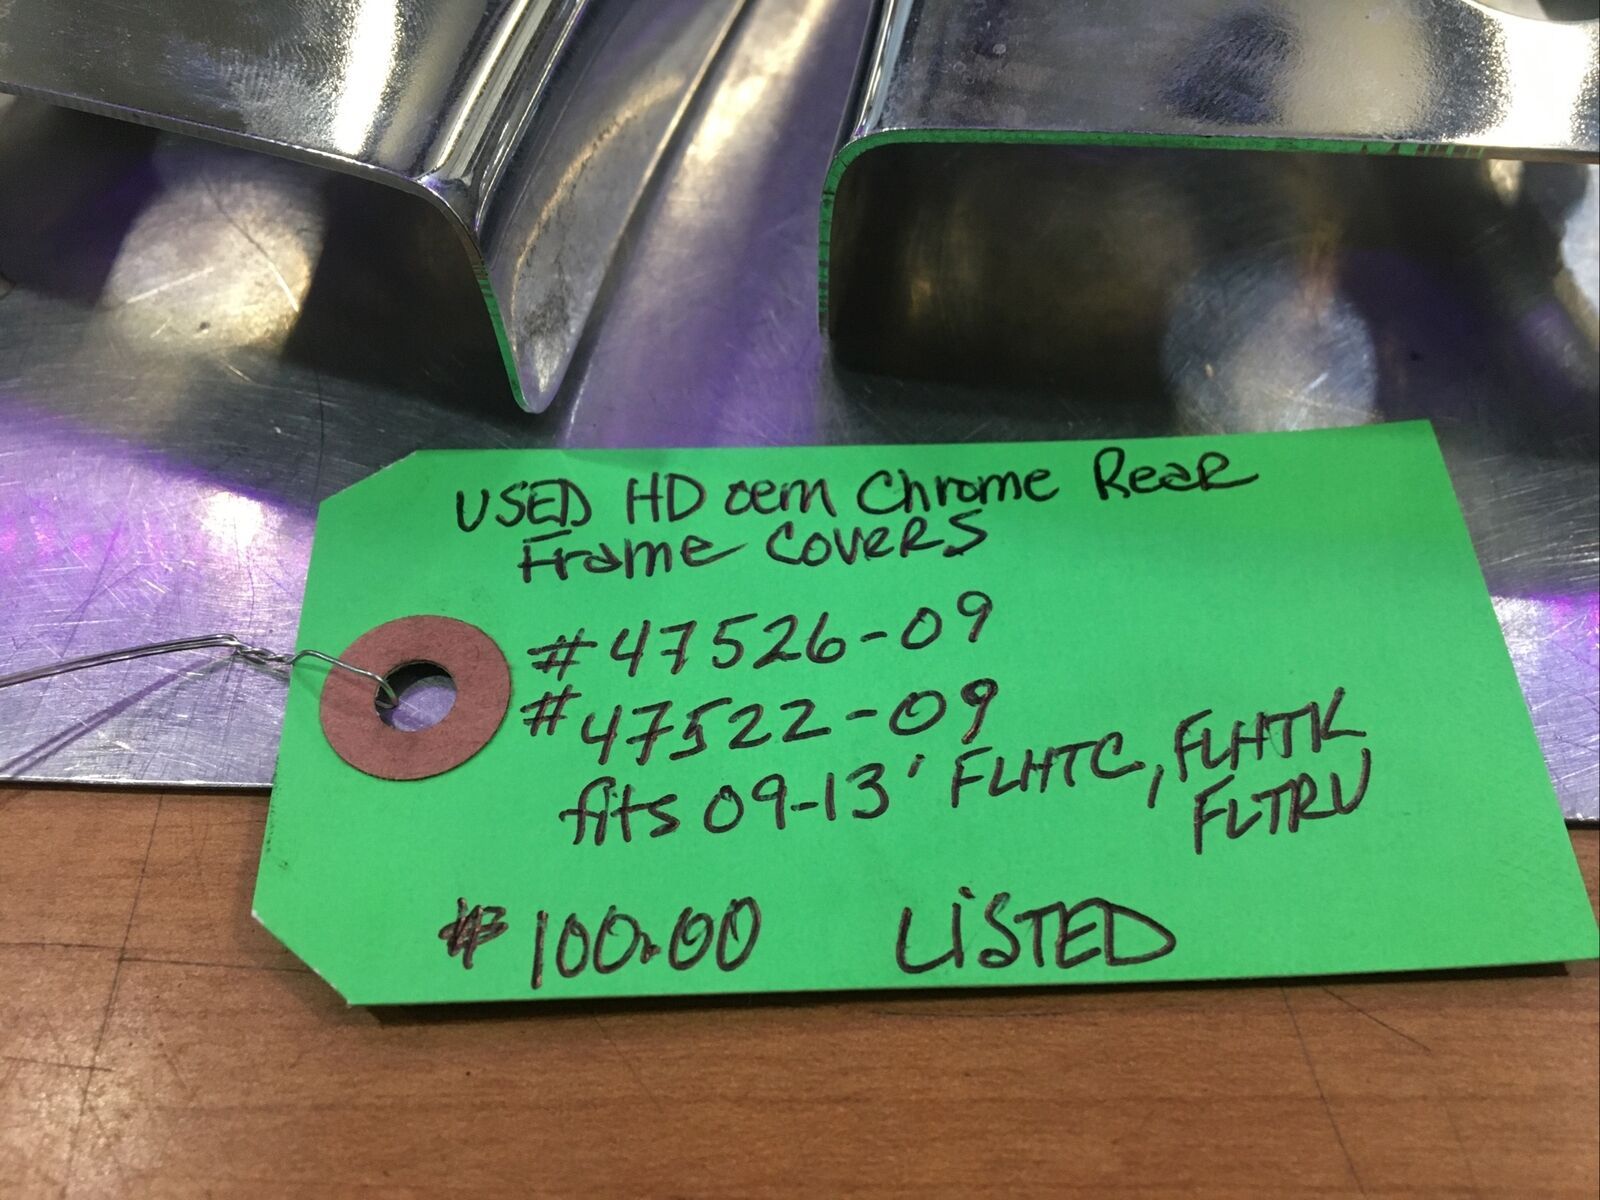 USED HD oem Chrome Rear
Frame Covers
#47526-09
#47522-09
fits 09-13' FLHTC, FLHTK
FLTRU
$100.00 LiSTED